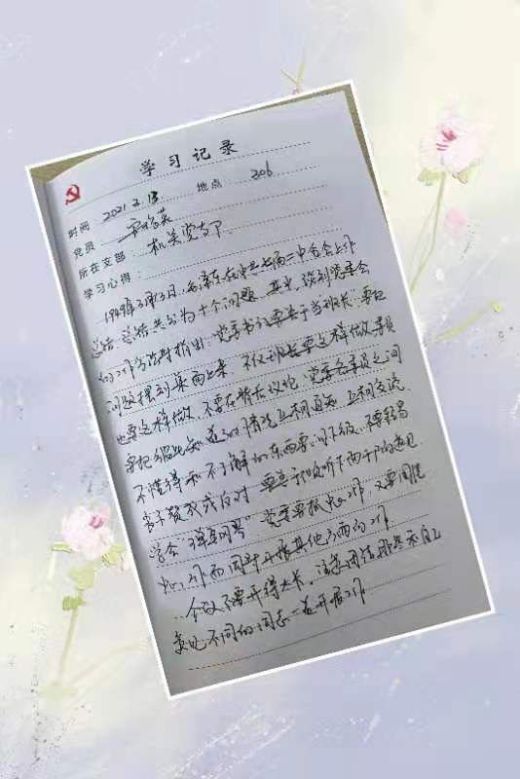 学习记录
时间 2021.2.13 地点 206
党员
所在支部 机关党支部
学习心得:
1949年3月13日,毛泽东在中共七届二中全会上作
总结 总结共分为十个问题 其中 谈到党委会
的工作方法时指出:党委书记要善于当“班长”要把
问题摆到桌面上来 不仅班长要这样做 委员
也要这样做,不要在背后议论 党委各委员之间
要把彼此知道的情况互相通知 互相交流
不懂得和不了解的东西要问下级,不要轻易
表示赞成或反对 要善于倾听下面干部的意见
学会“弹钢琴” 党委要抓中心工作,又要围绕
中心工作而同时开展其他方面的工作
会议不要开得太长,注意团结那些和自己
意见不同的同志一道开展工作